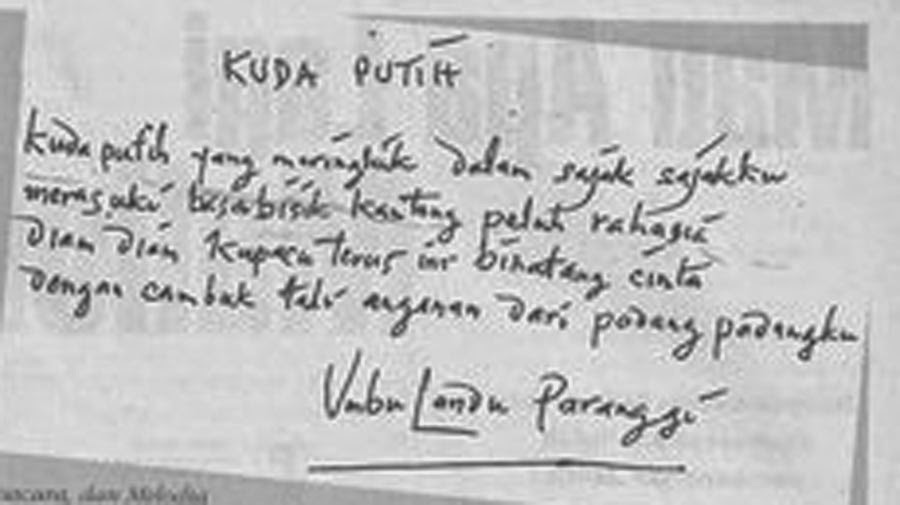 KUDA PUTIH
kuda putih yang meringkik dalam sajak sajakku
merasuki basabisik kantong peluh rahasia
diam diam kupacu terus ini binatang cinta
dengan cambuk tali anganan dari padang padangku
Umbu Landu Paranggi
dan Melodia